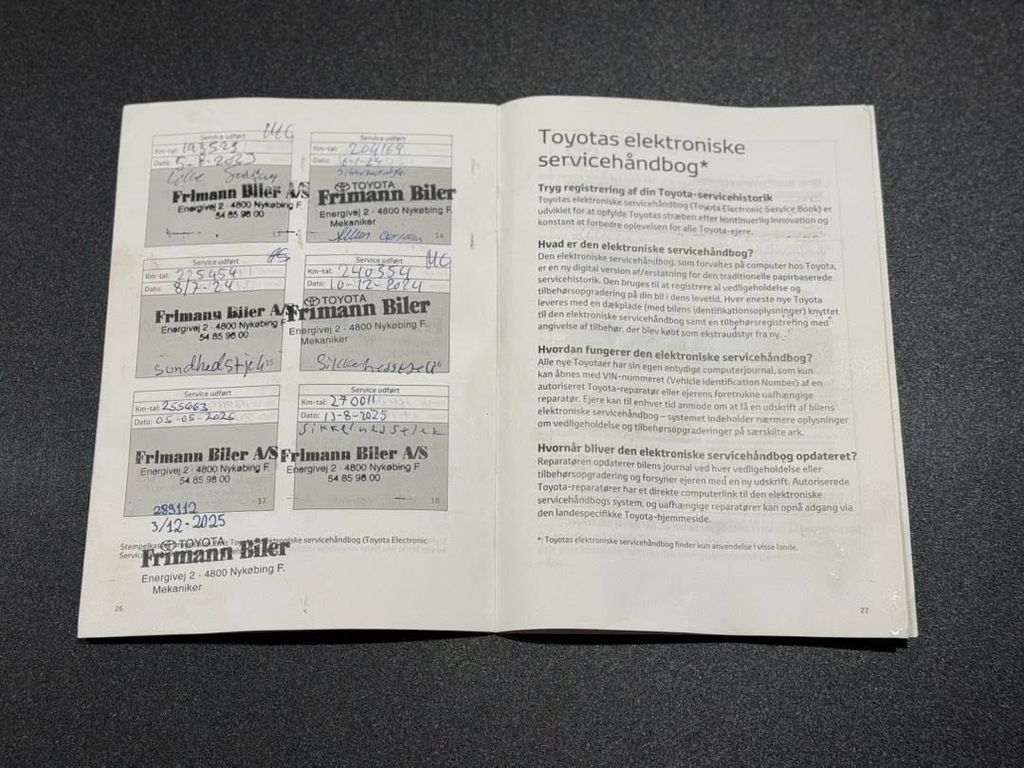 Service udført
MG
Km-tal: 193523
Dato: 5-8-2023
Lille
Frimann Biler A/S
Energivej 2 - 4800 Nykøbing F.
54 85 98 00
Service udført
Km-tal: 204169
Dato:
TOYOTA
Frimann Biler
Energivej 2 - 4800 Nykøbing F.
Mekaniker
14
Service udført
Km-tal: 225454
Dato: 8/7-24
Frimann Biler A/S
Energivej 2 - 4800 Nykøbing F.
54 85 98 00
Sundhedstjek 15
Service udført
MG
Km-tal: 240554
Dato: 10-12-2024
TOYOTA
Frimann Biler
Energivej 2 - 4800 Nykøbing F.
Mekaniker
16
Service udført
Km-tal: 255663
Dato: 05-05-2025
Frimann Biler A/S
Energivej 2 - 4800 Nykøbing F.
54 85 98 00
17
Service udført
Km-tal: 270011
Dato: 13-8-2025
Frimann Biler A/S
Energivej 2 - 4800 Nykøbing F.
54 85 98 00
18
289112
3/12-2025
servicehåndbog (Toyota Electronic
TOYOTA
Frimann Biler
Energivej 2 - 4800 Nykøbing F.
Mekaniker
26
Toyotas elektroniske
servicehåndbog*
Tryg registrering af din Toyota-servicehistorik
Toyotas elektroniske servicehåndbog (Toyota Electronic Service Book) er
udviklet for at opfylde Toyotas stræben efter kontinuerlig innovation og
konstant at forbedre oplevelsen for alle Toyota-ejere.
Hvad er den elektroniske servicehåndbog?
Den elektroniske servicehåndbog, som forvaltes på computer hos Toyota,
er en ny digital version af/erstatning for den traditionelle papirbaserede
servicehistorik. Den bruges til at registrere al vedligeholdelse og
tilbehørsopgradering på din bil i dens levetid. Hver eneste nye Toyota
leveres med en dækplade (med bilens identifikationsoplysninger) knyttet
til den elektroniske servicehåndbog samt en tilbehørsregistrering med
angivelse af tilbehør, der blev købt som ekstraudstyr fra ny.
Hvordan fungerer den elektroniske servicehåndbog?
Alle nye Toyotaer har sin egen entydige computerjournal, som kun
kan åbnes med VIN-nummeret (Vehicle Identification Number) af en
autoriseret Toyota-reparatør eller ejerens foretrukne uafhængige
reparatør. Ejere kan til enhver tid anmode om at få en udskrift af bilens
elektroniske servicehåndbog – systemet indeholder nærmere oplysninger
om vedligeholdelse og tilbehørsopgraderinger på særskilte ark.
Hvornår bliver den elektroniske servicehåndbog opdateret?
Reparatøren opdaterer bilens journal ved hver vedligeholdelse eller
tilbehørsopgradering og forsyner ejeren med en ny udskrift. Autoriserede
Toyota-reparatører har et direkte computerlink til den elektroniske
servicehåndbogs system, og uafhængige reparatører kan opnå adgang via
den landespecifikke Toyota-hjemmeside.
*: Toyotas elektroniske servicehåndbog finder kun anvendelse i visse lande.
27